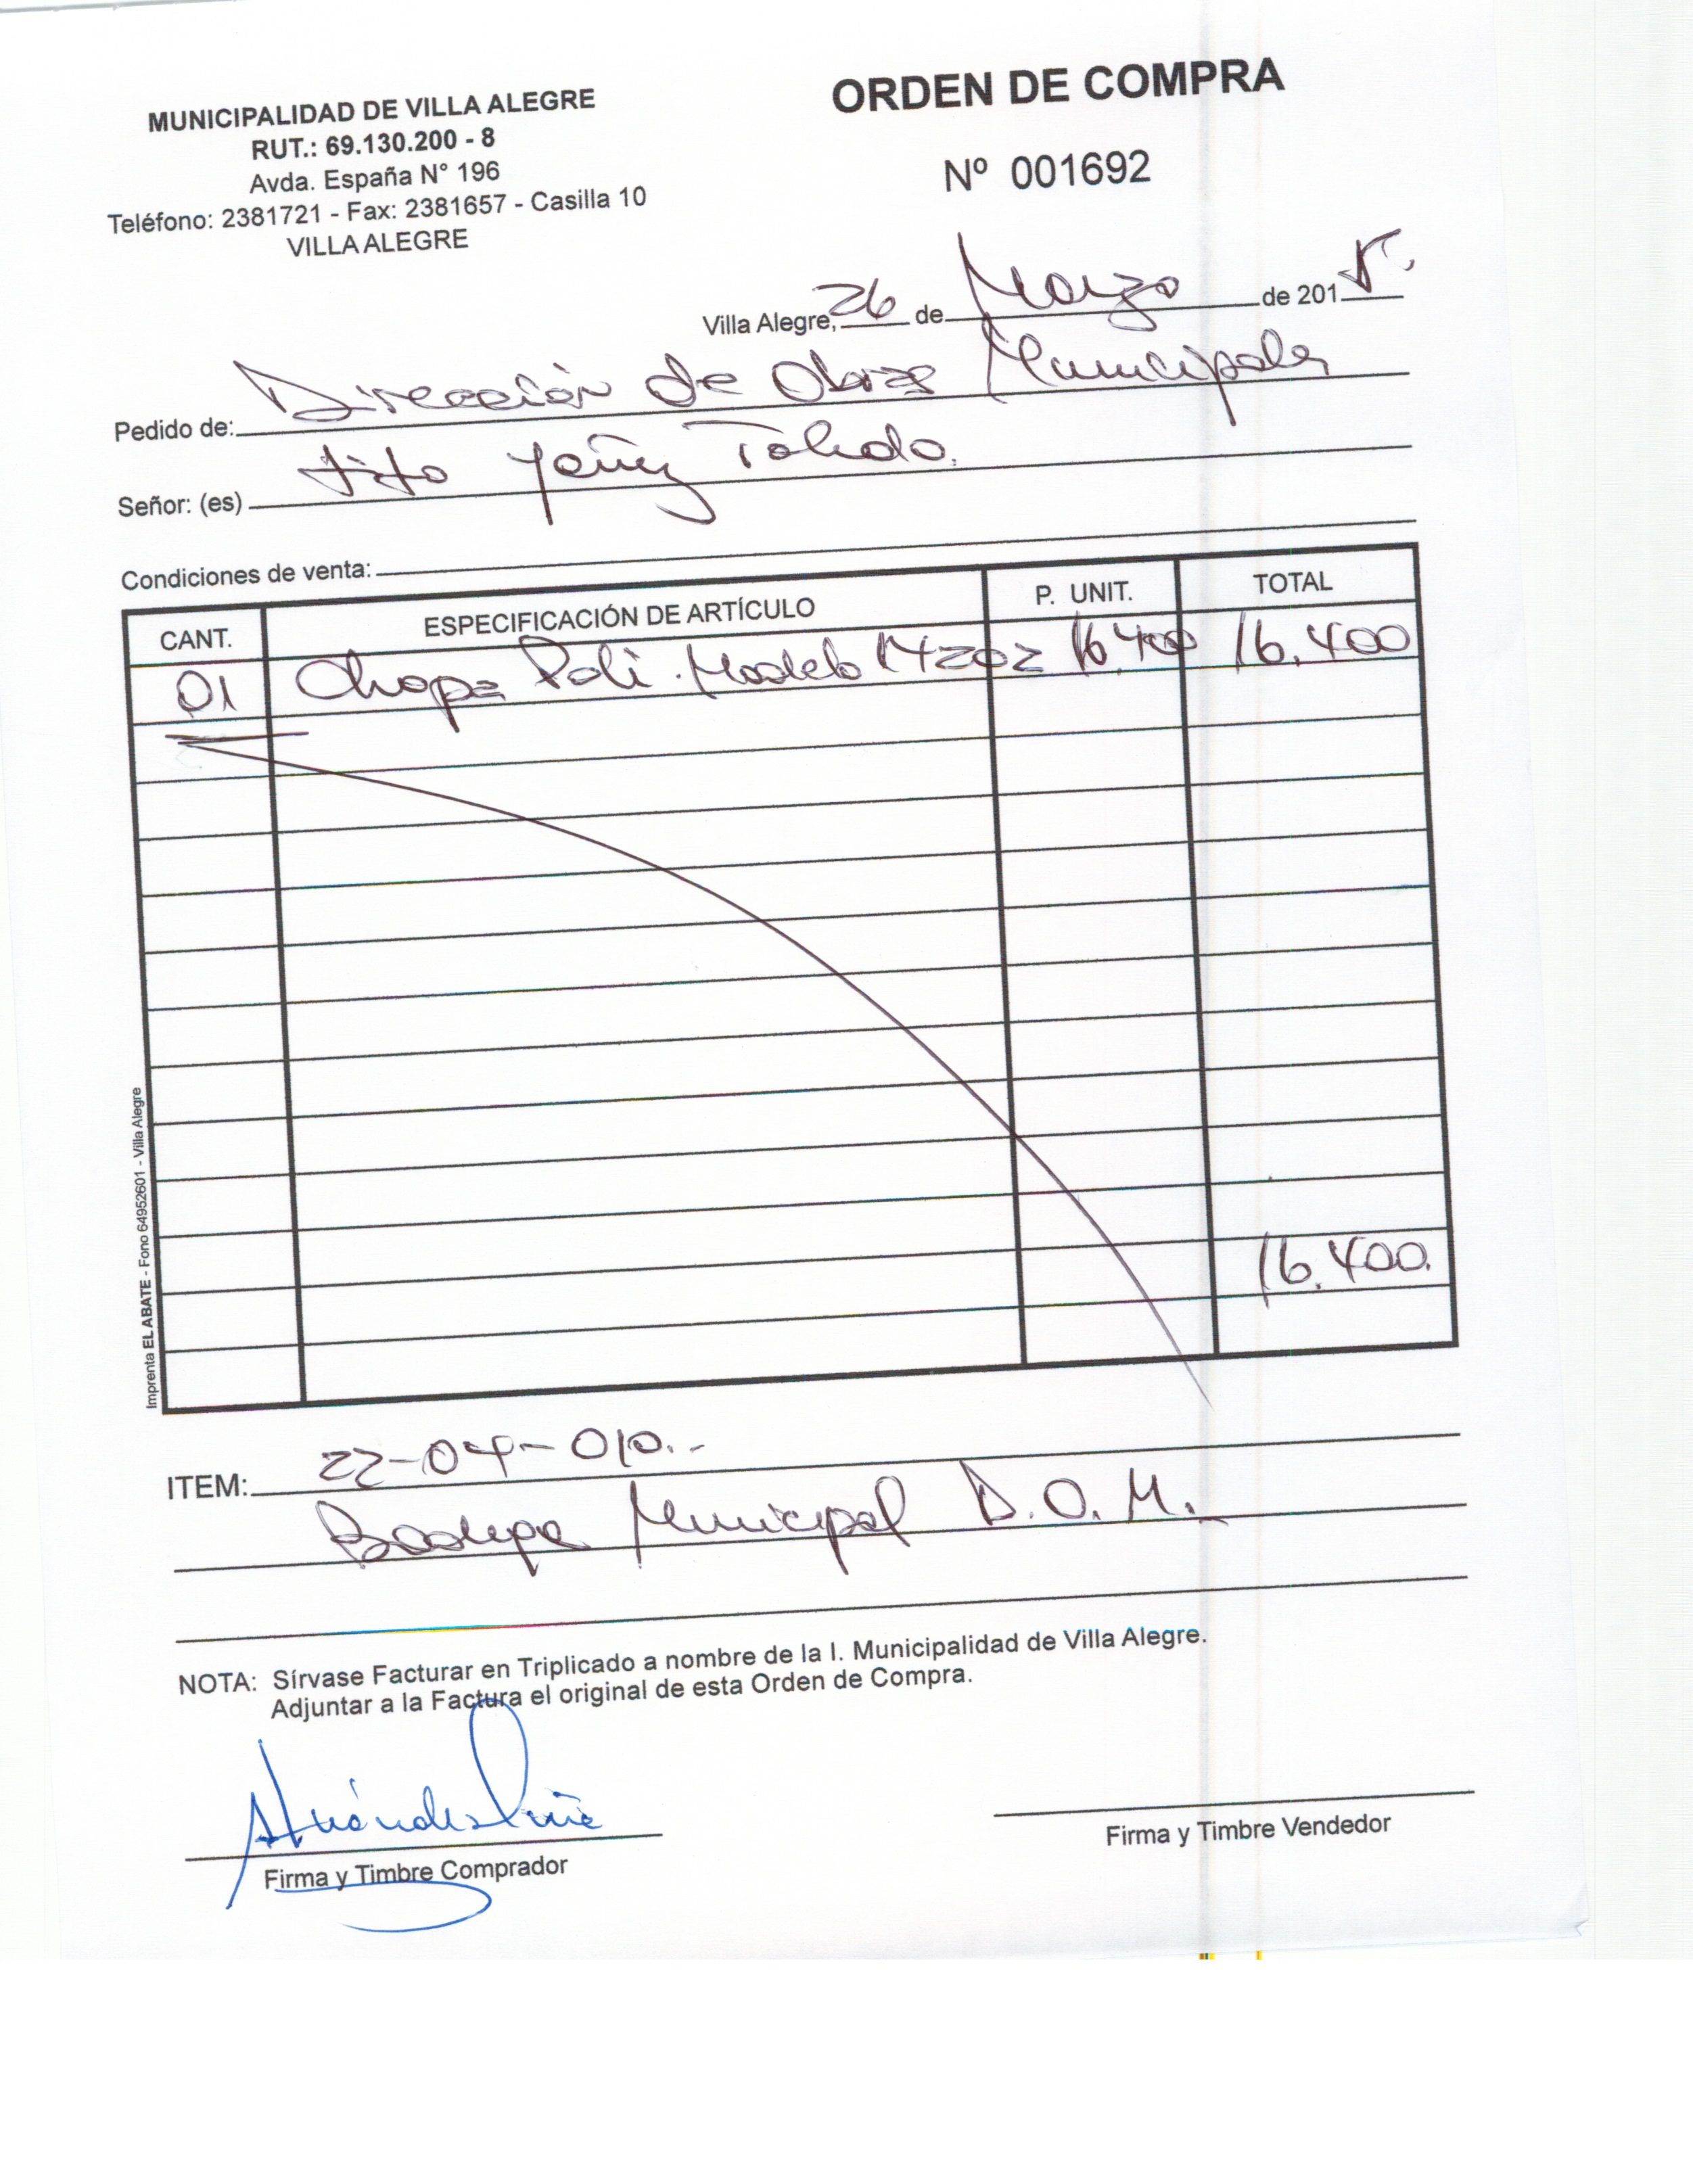 MUNICIPALIDAD DE VILLA ALEGRE
RUT.: 69.130.200 - 8
Avda. España N° 196
Teléfono: 2381721 - Fax: 2381657 - Casilla 10
VILLA ALEGRE
ORDEN DE COMPRA
Nº 001692
Villa Alegre, 26 de Marzo de 2015.
Pedido de: Dirección de Obras Municipales
Señor: (es) Tito Yañez Toledo.
Condiciones de venta:
CANT. ESPECIFICACIÓN DE ARTÍCULO P. UNIT. TOTAL
01 Chapa Poli. Modelo 14202 16.400 16.400
16.400.
Imprenta EL ABATE - Fono 64952601 - Villa Alegre
ITEM: 22-04-010.-
Bodega Municipal D.O.M.
NOTA: Sírvase Facturar en Triplicado a nombre de la I. Municipalidad de Villa Alegre.
Adjuntar a la Factura el original de esta Orden de Compra.
Firma y Timbre Comprador
Firma y Timbre Vendedor